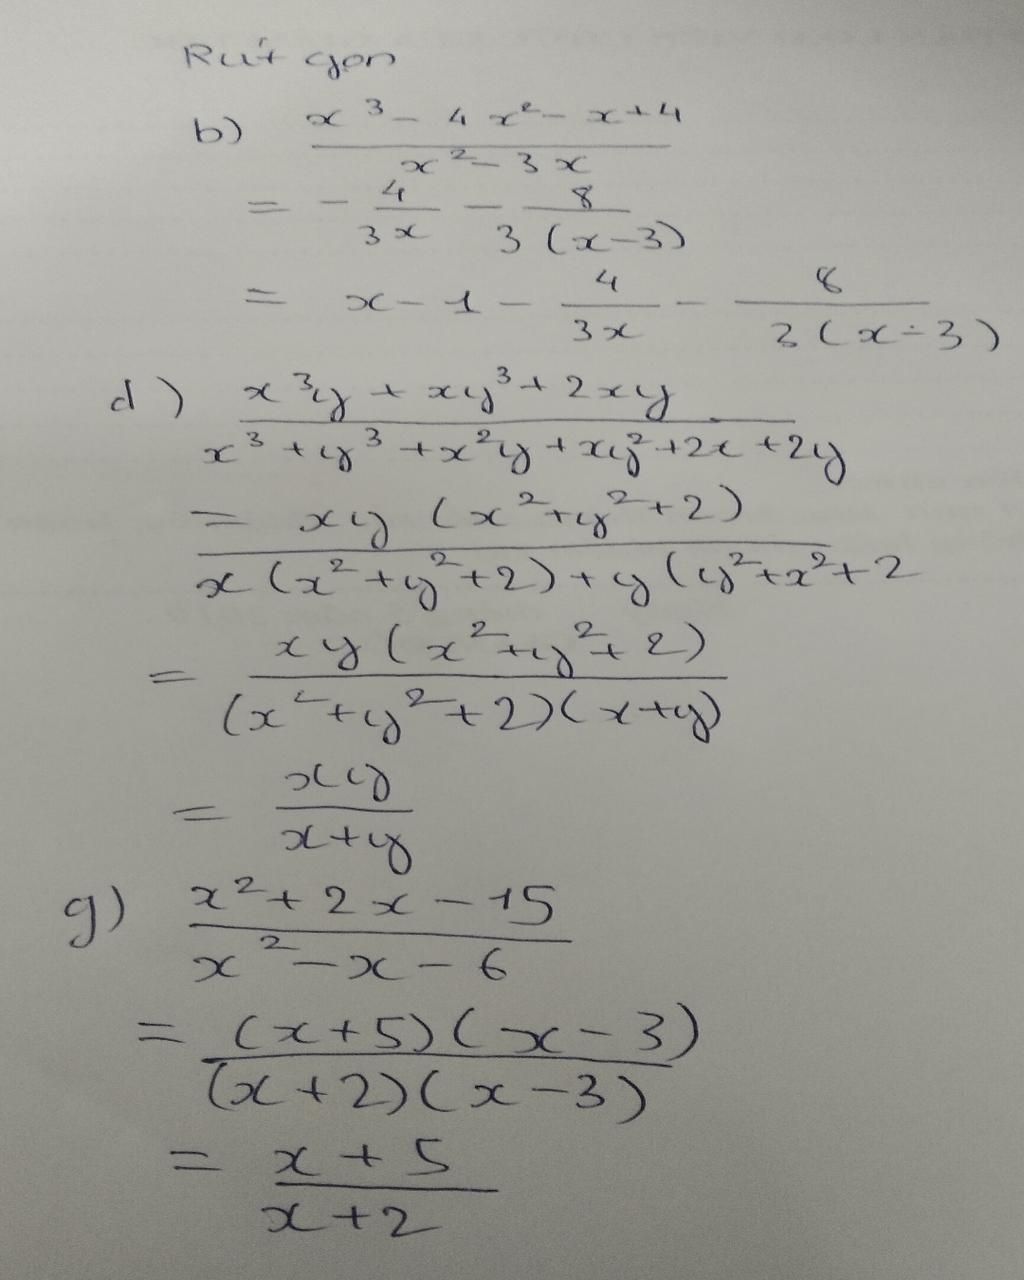 Rút gọn
b) \frac{x^3 - 4x^2 - x + 4}{x^2 - 3x}
= - \frac{4}{3x} - \frac{8}{3(x-3)}
= x - 1 - \frac{4}{3x} - \frac{8}{3(x-3)}
d) \frac{x^3y + xy^3 + 2xy}{x^3 + y^3 + x^2y + xy^2 + 2x + 2y}
= \frac{xy(x^2 + y^2 + 2)}{x(x^2 + y^2 + 2) + y(y^2 + x^2 + 2}
= \frac{xy(x^2 + y^2 + 2)}{(x^2 + y^2 + 2)(x + y)}
= \frac{xy}{x + y}
g) \frac{x^2 + 2x - 15}{x^2 - x - 6}
= \frac{(x + 5)(x - 3)}{(x + 2)(x - 3)}
= \frac{x + 5}{x + 2}